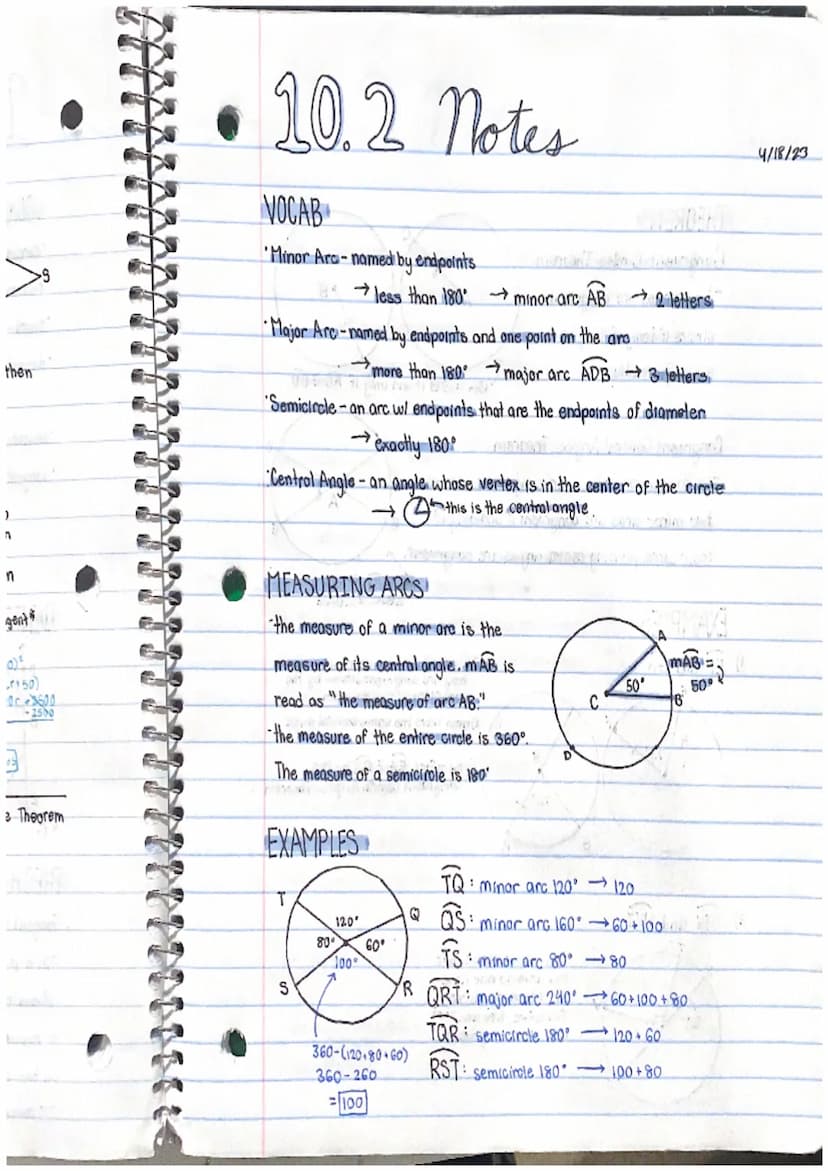 10.2 Notes
4/18/23
VOCAB
·Minor Arc - named by endpoints
→ less than 180° → minor arc AB → 2 letters
·Major Arc - named by endpoints and one point on the arc
→ more than 180° → major arc ADB → 3 letters
·Semicircle - an arc w/ endpoints that are the endpoints of diameter
→ exactly 180°
·Central Angle - an angle whose vertex is in the center of the circle
→ this is the central angle
MEASURING ARCS
-the measure of a minor arc is the
measure of its central angle. mAB is
read as "the measure of arc AB."
-the measure of the entire circle is 360°.
The measure of a semicircle is 180°
A
mAB =
50°
50°
C
B
D
EXAMPLES
T
Q
120°
80°
60°
100°
S
R
360-(120+80+60)
360-260
=100
TQ: minor arc 120° → 120
QS: minor arc 160° → 60+100
TS: minor arc 80° → 80
QRT: major arc 240° → 60+100+80
TQR: semicircle 180° → 120+60
RST: semicircle 180° → 100+80
S
then
gent*
Theorem